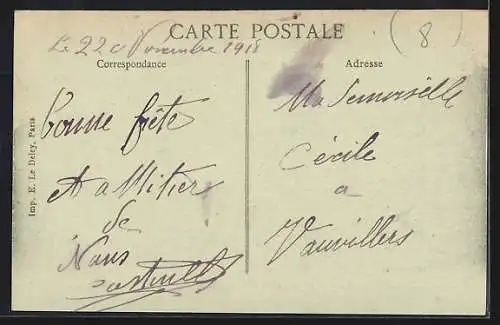 CARTE POSTALE
Le 22 Novembre 1918
(8)
Correspondance
Adresse
Bonne fête
de
Nous
Mademoiselle
Cécile
a
Vauvillers
Imp. E. Le Deley, Paris